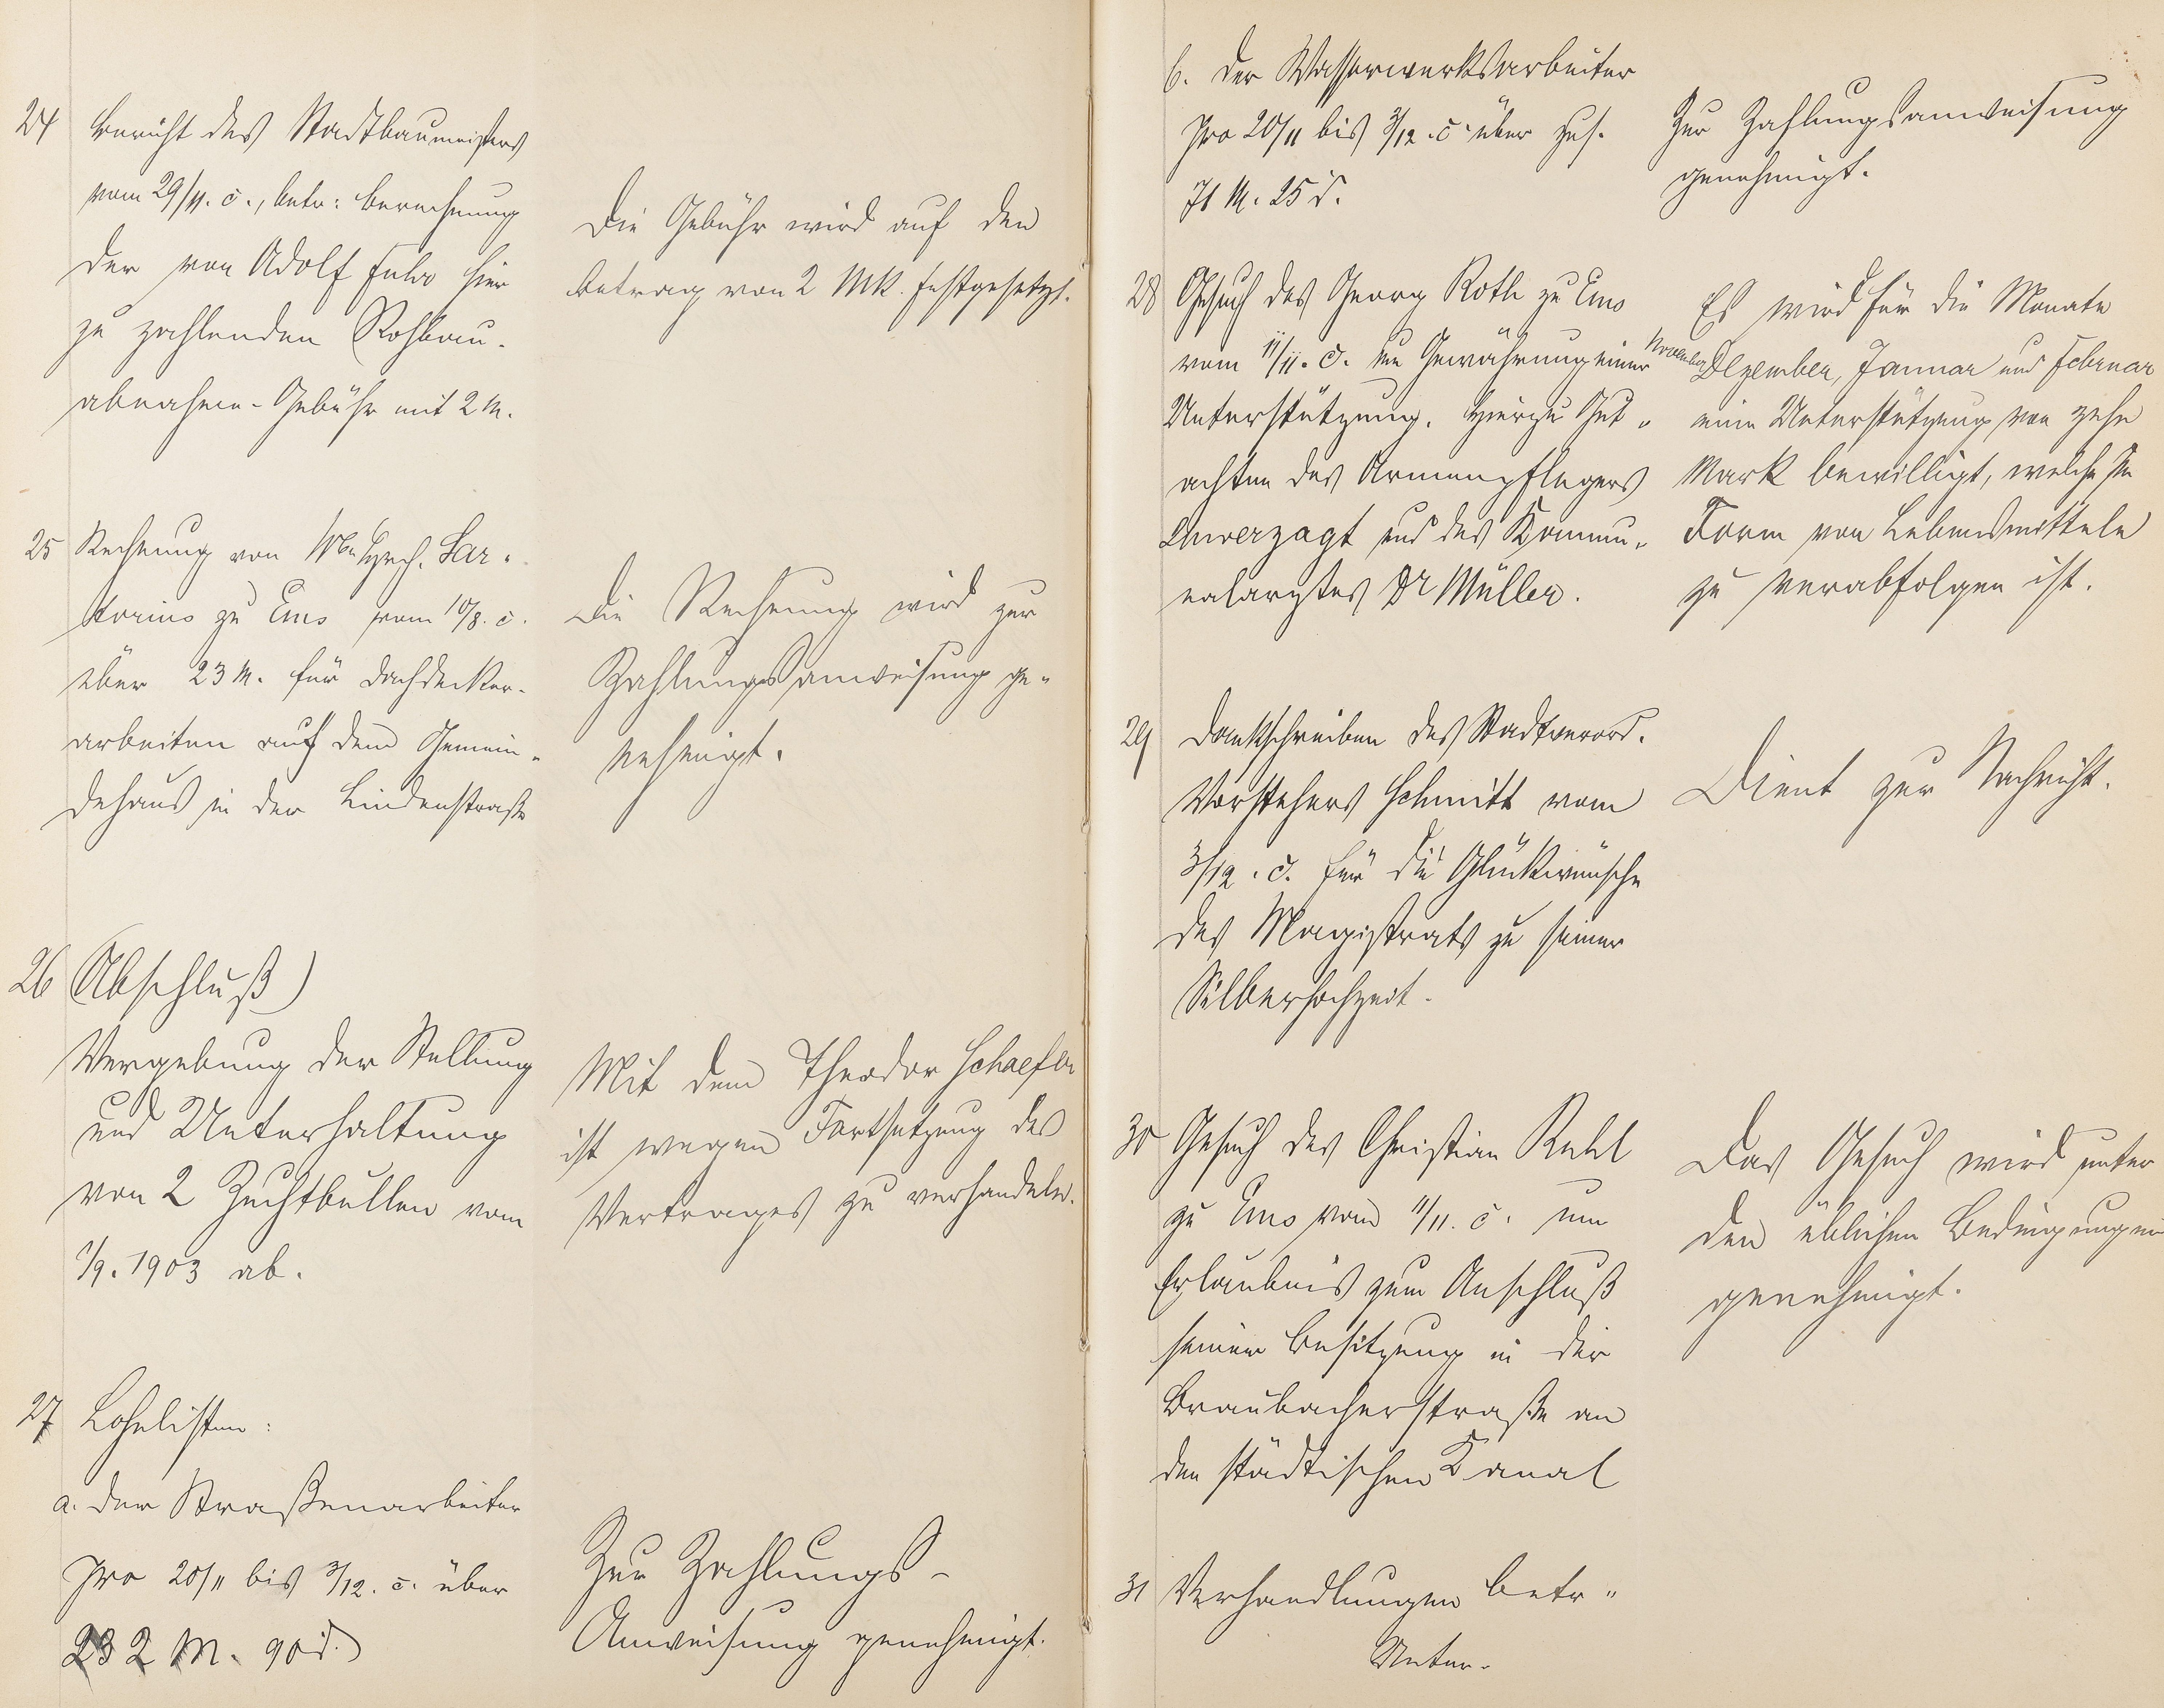 24 Bericht des Stadtbaumeisters
vom 29/11. c., betr: Berechnung
der von Adolf Fuhr hier
zu zahlenden Rohbau-
abnahme-Gebühr mit 2 M.
Die Gebühr wird auf den
Betrag von 2 Mk. festgesetzt.
25 Rechnung von Sar-
torius zu Ems vom 10/8. c.
über 23 M. für Dachdecker-
arbeiten auf dem Gemein-
dehaus in der Lindenstraße
Die Rechnung wird zur
Zahlungsanweisung ge-
nehmigt.
26 (Abschluß)
Vergebung der Stellung
und Unterhaltung
von 2 Zuchtbullen vom
1/9. 1903 ab.
Mit dem Theodor Schaefer
ist wegen Fortsetzung des
Vertrages zu verhandeln.
27 Lohnlisten:
a. der Straßenarbeiter
pro 20/11 bis 3/12. c. über
232 M. 90 d.
Zur Zahlungs-
Anweisung genehmigt.
b. der Wasserwerksarbeiter
pro 20/11 bis 3/12. c. über zus.
71 M. 25 d.
Zur Zahlungsanweisung
genehmigt.
28 Gesuch des Georg Roth zu Ems
vom 11/11. c. um Gewährung einer
Unterstützung. Hierzu Gut-
achten des Armenpflegers
Unverzagt und des Kommu-
nalarztes Dr Müller.
Es wird für die Monate
November Dezember, Januar und Februar
eine Unterstützung von zehn
Mark bewilligt, welche in
Form von Lebensmitteln
zu verabfolgen ist.
29 Dankschreiben des Stadtverord.
Vorstehers Schmitt vom
3/12. c. für die Glückwünsche
des Magistrats zu seiner
Silberhochzeit.
Dient zur Nachricht.
30 Gesuch des Christian Ruhl
zu Ems vom 11/11. c. um
Erlaubnis zum Anschluß
seiner Besitzung in der
Braubacherstraße an
den städtischen Kanal
Das Gesuch wird unter
den üblichen Bedingungen
genehmigt.
31 Verhandlungen betr"
Unter-